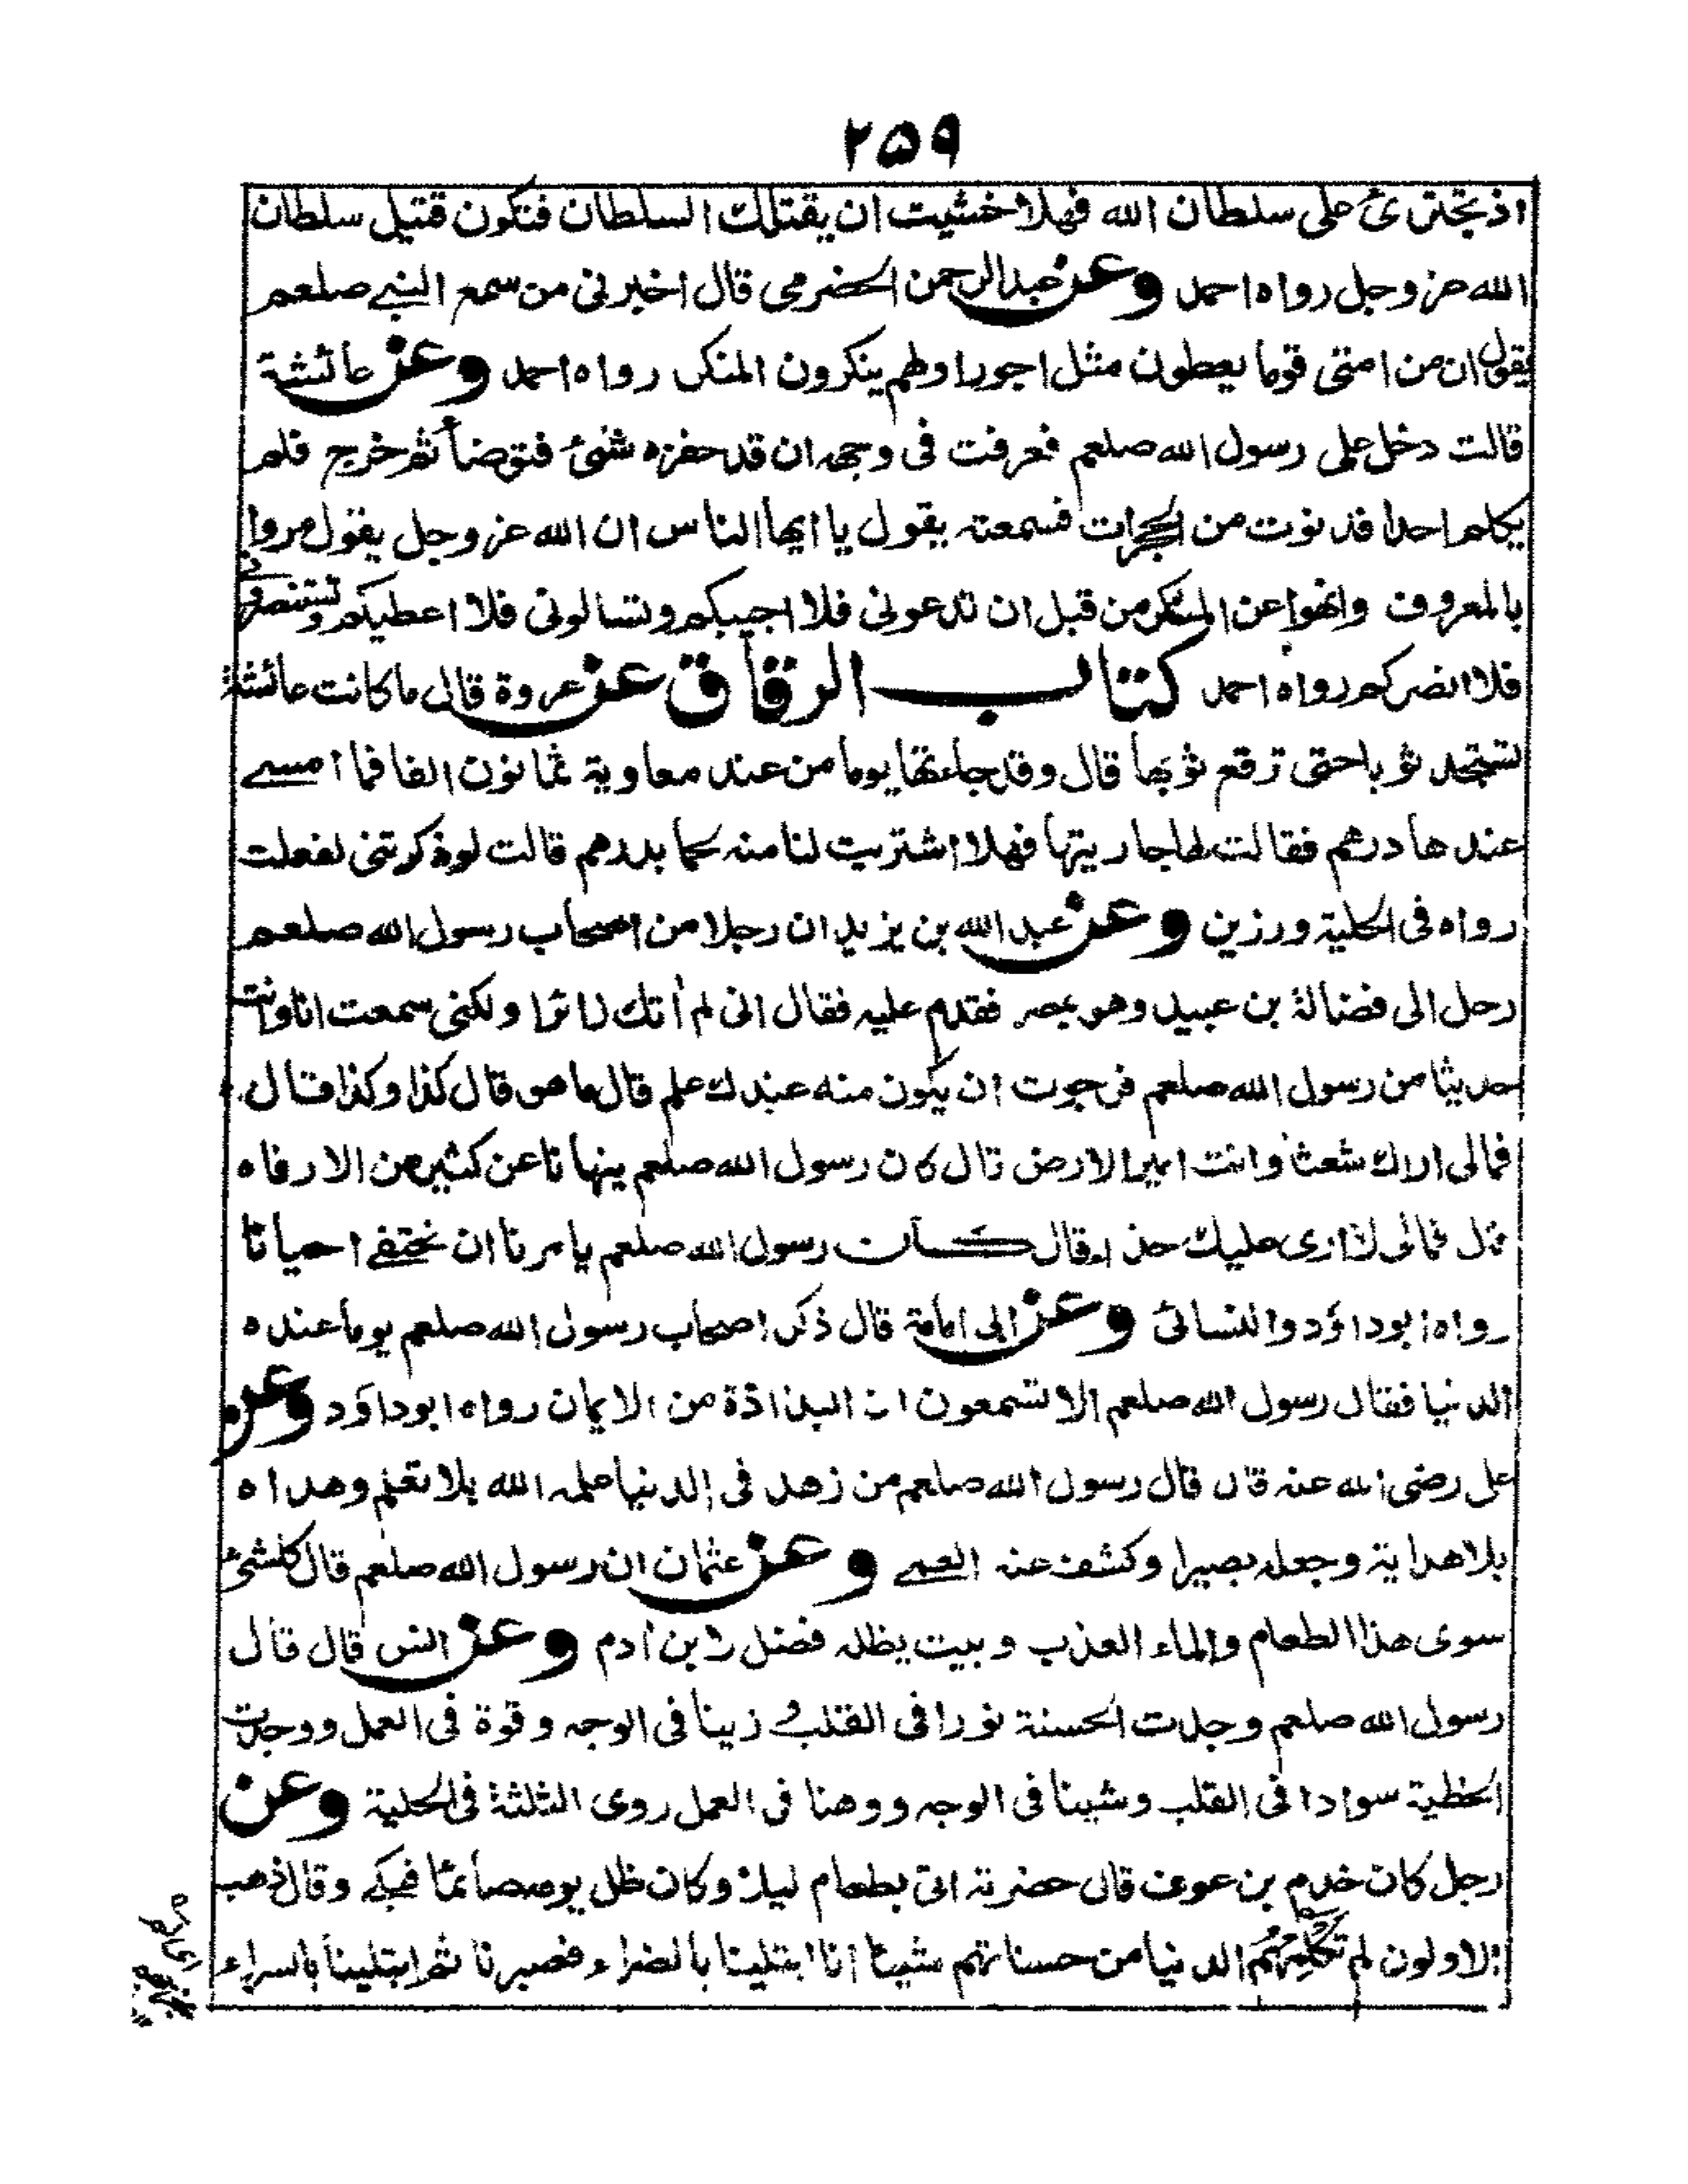 ۲۵۹
اذ تجترئ على سلطان الله فهلا خشيت ان يقتلك السلطان فتكون قتيل سلطان
الله عز وجل رواه احمد وعن عبد الرحمن الحضرمى قال اخبرنى من سمع النبى صلعم
يقول ان من امتى قوما يعطون مثل اجور اولهم ينكرون المنكر رواه احمد وعن عائشة
قالت دخل على رسول الله صلعم فعرفت فى وجهه ان قد حفزه شئ فتوضأ ثم خرج فلم
يكلم احدا فدنوت من الحجرات فسمعته يقول يا ايها الناس ان الله عز وجل يقول مروا
بالمعروف وانهوا عن المنكر من قبل ان تدعونى فلا اجيبكم وتسالونى فلا اعطيكم وتستنصرونى
فلا انصركم رواه احمد كتاب الرقاق عن عروة قال ما كانت عائشة
تستجد ثوبا حتى ترقع ثوبها قال وقد جاءتها يوما من عند معاوية ثمانون الفا فما امسى
عندها درهم فقالت لها جاريتها فهلا اشتريت لنا منه لحما بدرهم قالت لو ذكرتنى لفعلت
رواه فى الحلية ورزين وعن عبد الله بن يزيد ان رجلا من اصحاب رسول الله صلعم
رحل الى فضالة بن عبيد وهو بمصر فقدم عليه فقال انى لم أتك زائرا ولكنى سمعت انا وانت
حديثا من رسول الله صلعم فرجوت ان يكون منه عندك علم قال ما هو قال كذا وكذا قال
فمالى اراك شعثا وانت امير الارض قال كان رسول الله صلعم ينهانا عن كثير من الارفاه
قال فمالى لا ارى عليك حذاء قال كان رسول الله صلعم يامرنا ان نحتفى احيانا
رواه ابو داؤد والنسائى وعن ابى امامة قال ذكر اصحاب رسول الله صلعم يوما عنده
الدنيا فقال رسول الله صلعم الا تسمعون ان البذاذة من الايمان رواه ابو داود وعن
على رضى الله عنه قال قال رسول الله صلعم من زهد فى الدنيا علمه الله بلا تعلم وهداه
بلا هداية وجعله بصيرا وكشف عنه العمى وعن عثمان ان رسول الله صلعم قال كلشئ
سوى هذا الطعام والماء العذب وبيت يظله فضل لابن أدم وعن انس قال قال
رسول الله صلعم وجدت الحسنة نورا فى القلب و زينا فى الوجه وقوة فى العمل ووجدت
الخطية سوادا فى القلب وشينا فى الوجه ووهنا فى العمل روى الثلثة فى الحلية وعن
رجل كان خدم بن عوف قال حضرته اتى بطعام ليلا وكان ظل يومه صائما فبكى وقال ذهب
الاولون لم تكلمهم الدنيا من حسناتهم شيئا انا ابتلينا بالضراء فصبرنا ثم ابتلينا بالسراء